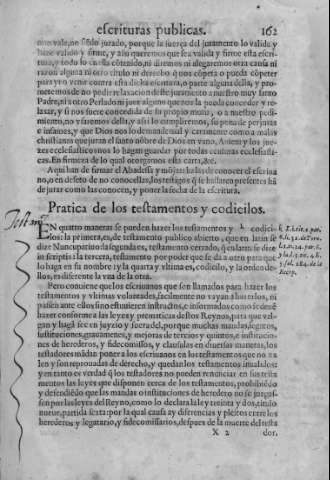 escrituras publicas. 162
uno vale, no siẽdo jurado, porque la fuerça del juramento lo valida y
haze valido y firme, y aũ queremos que sea valida y firme esta escri
tura, y todo lo en ella cõtenido, ni diremos ni alegaremos otra causa ni
razon alguna ni otro titulo ni derecho q̃ nos cõpeta o pueda cõpeter
para yr o venir contra esta dicha escritura, o parte alguna della, y pro-
metemos de no pedir relaxacion deste juramento a nuestro muy santo
Padre, ni a otro Perlado ni juez alguno que nos la pueda conceder y re-
laxar, y si nos fuere concedida de su propio motu, o a nuestro pedi-
mento, no vsaremos della, y assi lo cumpliremos, so pena de perjuras
e infames, y que Dios nos lo demande mal y caramente como a malas
christianas que juran el santo nõbre de Dios en vano, A si en y los jue-
zes ecclesiasticos nos lo hagan guardar por todas censuras ecclesiasti-
cas. En firmeza de lo qual otorgamos esta carta, &c.
Aqui han de firmar el Abadesa y mõjas las de conocer el escriua
no, o en defeto de no conocellas, los testigos q̃ se hallaren presentes hã
de jurar como las conocen, y poner la fecha de la escritura.
Pratica de los testamentos y codicilos.
Testam
EN quatro maneras se pueden hazer los testamentos y codici-
los: la primera, es, de testamento publico abierto, que en latin se
dize Nuncupatiuo: la segunda es, testamento cerrado, q̃ en latin se dize
in scriptis: la tercera, testamento por poder que se da a otro para que
lo haga en su nombre: y la quarta y vltima es, codicilo, y la orden de-
llos, es diferente la vna de la otra.
Pero conuiene que los escriuanos que son llamados para hazer los
testamentos y vltimas voluntades, facilmente no vayan a hazerlos, ni
passen ante ellos sino estuuieren instrudos, e informados como se deuẽ
hazer conforme a las leyes y prematicas destos Reynos, para que val-
gan y haga fee en juyzio y fuera del, porque muchas mandas, legatos,
instituciones, grauamenes, y mejoras de tercio y quinto, e institucio-
nes de herederos, y fideicomissos, y clausulas en diuersas maneras, los
testadores mãdã poner a los escriuanos en los testamentos que no va
len y son reprouadas de derecho, y quedan los testamentos anulados:
y en tanto es verdad q̃ los testadores no pueden renunciar en sus testa
mentos las leyes que disponen cerca de los testamentos, prohibiẽdo
y defendiẽdo que las mandas o instituciones de heredero no se juzgas-
sen por las leyes del Reyno, como lo declara la ley treinta y dos, titulo
nueue, partida sexta: por la qual causa ay diferencias y pleitos entre los
herederos y legatario, y fideicomissarios, despues de la muerte del testa
X 2 dor.